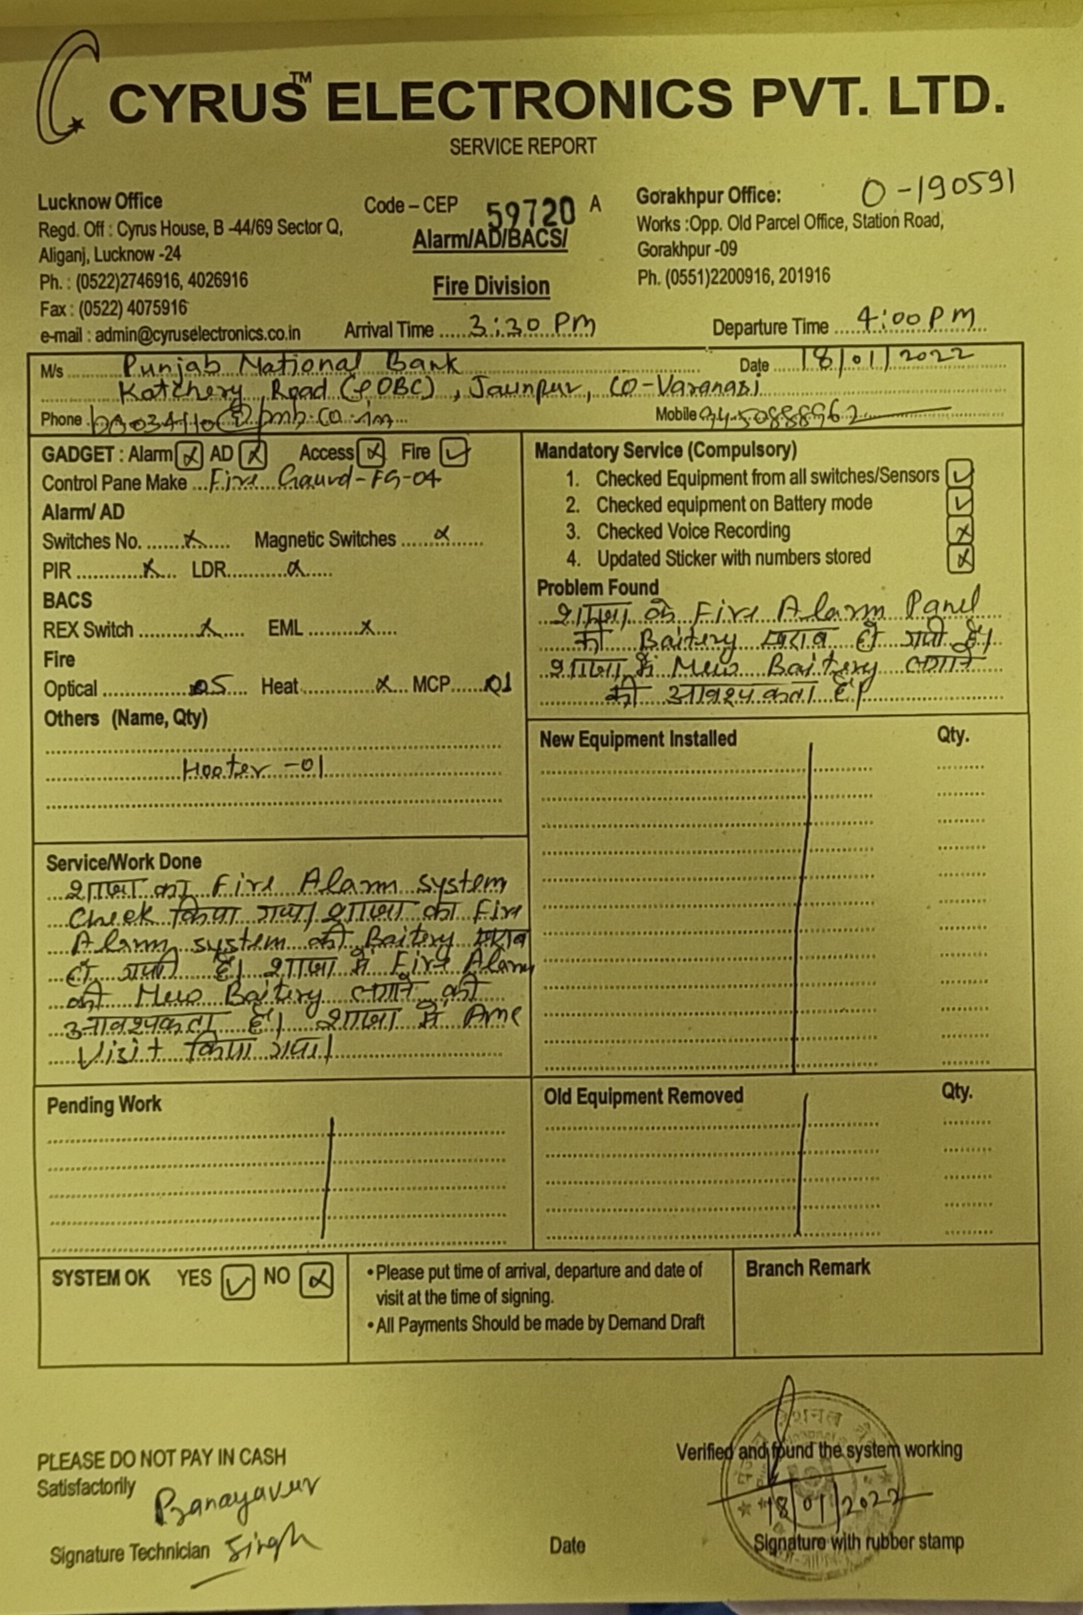 CYRUS™ ELECTRONICS PVT. LTD.
SERVICE REPORT
Lucknow Office
Regd. Off : Cyrus House, B -44/69 Sector Q,
Aliganj, Lucknow -24
Ph. : (0522)2746916, 4026916
Fax : (0522) 4075916
e-mail : admin@cyruselectronics.co.in
Code – CEP 59720 A
Alarm/AD/BACS/
Fire Division
Arrival Time 3:30 PM
O-190591
Gorakhpur Office:
Works :Opp. Old Parcel Office, Station Road,
Gorakhpur -09
Ph. (0551)2200916, 201916
Departure Time 4:00 PM
M/s Punjab National Bank
Date 18/01/2022
Katchery Road (eOBC), Jaunpur, CO-Varanasi
Phone @pnb.co.in
Mobile
GADGET : Alarm x AD x Access x Fire ✓
Control Pane Make Fire Gaurd-FG-04
Alarm/ AD
Switches No. x Magnetic Switches x
PIR x LDR x
BACS
REX Switch x EML x
Fire
Optical 05 Heat x MCP 01
Others (Name, Qty)
Hooter -01
Mandatory Service (Compulsory)
1. Checked Equipment from all switches/Sensors ✓
2. Checked equipment on Battery mode ✓
3. Checked Voice Recording x
4. Updated Sticker with numbers stored x
Problem Found
शाखा के Fire Alarm Panel
की Baitery खराब हो गयी है।
शाखा में New Baitery लगाने
की आवश्यकता है।
New Equipment Installed Qty.
Service/Work Done
शाखा का Fire Alarm system
Check किया गया। शाखा का Fire
Alarm system की Baitery खराब
हो गयी है। शाखा में Fire Alarm
की New Baitery लगाने की
आवश्यकता है। शाखा में Amc
Visit किया गया।
Pending Work
Old Equipment Removed Qty.
SYSTEM OK YES ✓ NO x
• Please put time of arrival, departure and date of
visit at the time of signing.
• All Payments Should be made by Demand Draft
Branch Remark
PLEASE DO NOT PAY IN CASH
Satisfactorily
Signature Technician Singh
Date
Verified and found the system working
18/01/2022
Signature with rubber stamp